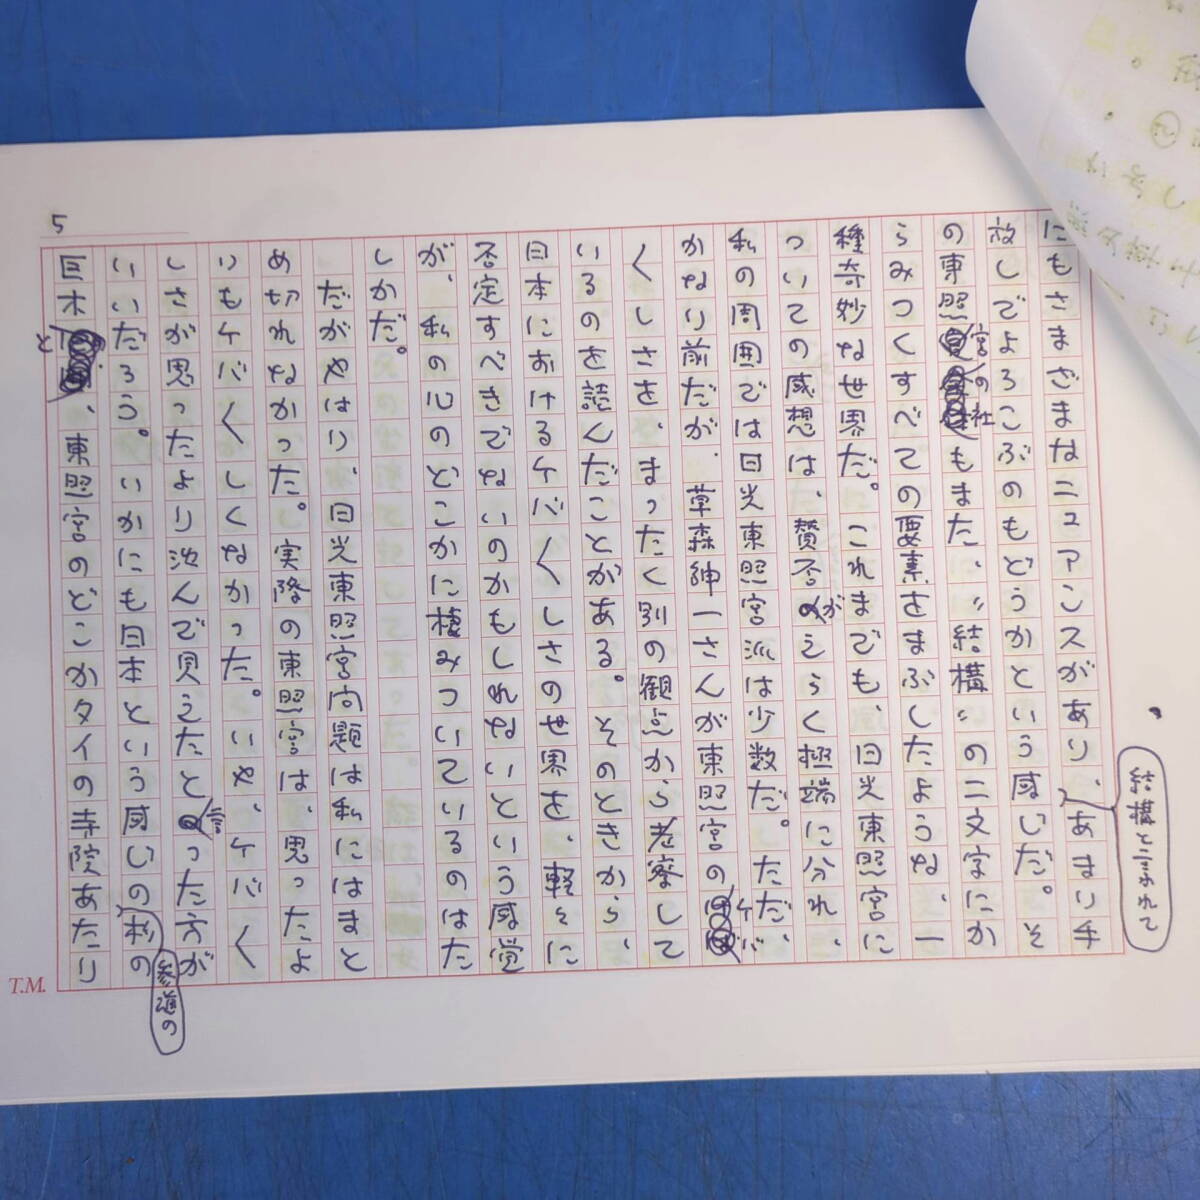 5
にもさまざまなニュアンスがあり、結構と言われてあまり手
放しでよろこぶのもどうかという感じだ。そ
の東照宮の社もまた、〝結構〟の二文字にか
らみつくすべての要素をまぶしたような、一
種奇妙な世界だ。これまでも、日光東照宮に
ついての感想は、賛否がえらく極端に分れ、
私の周囲では日光東照宮派は少数だ。ただ、
かなり前だが、草森紳一さんが東照宮のケバ
〱しさを、まったく別の観点から考察して
いるのを読んだことがある。そのときから、
日本におけるケバ〱しさの世界を、軽々に
否定すべきでないのかもしれないという感覚
が、私の心のどこかに棲みついているのはた
しかだ。
だがやはり、日光東照宮問題は私にはまと
め切れなかった。実際の東照宮は、思ったよ
りもケバ〱しくなかった。いや、ケバ〱
しさが思ったより沈んで見えたと言った方が
いいだろう。いかにも日本という感じの参道の杉の
巨木と、東照宮のどこかタイの寺院あたり
T.M.